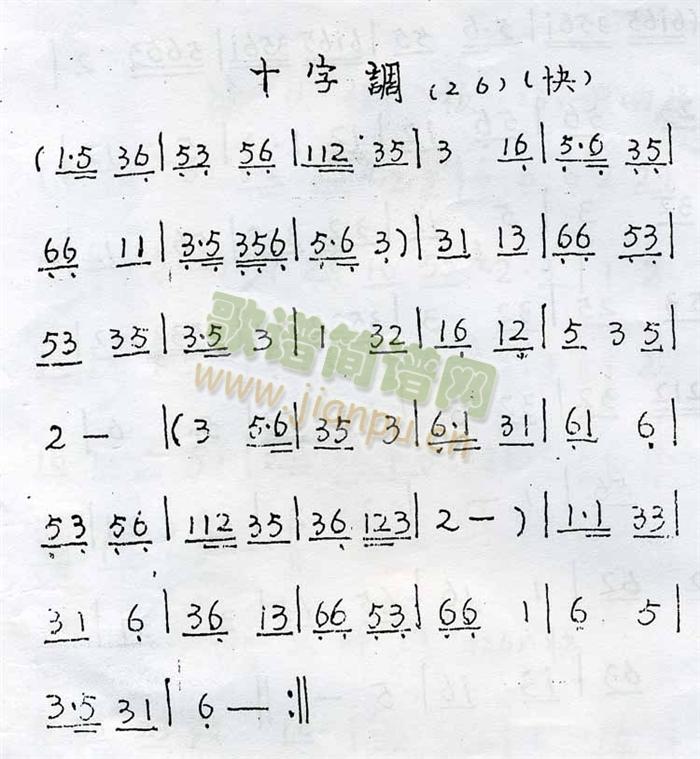 十字調 (26) (快)
(1·5 36|53 56|112 35|3 16|5·6 35|
66 11|3·5 356|5·6 3)|31 13|66 53|
53 35|3·5 3|1 32|16 12|5 3 5|
歌谱简谱网
www.jianpu.cn
2 — |(3 5·6|35 3|6·1 31|61 6|
53 56|112 35|36 123|2 — )|1·1 33|
31 6|36 13|66 53|66 1|6 5|
3·5 31|6 — :||